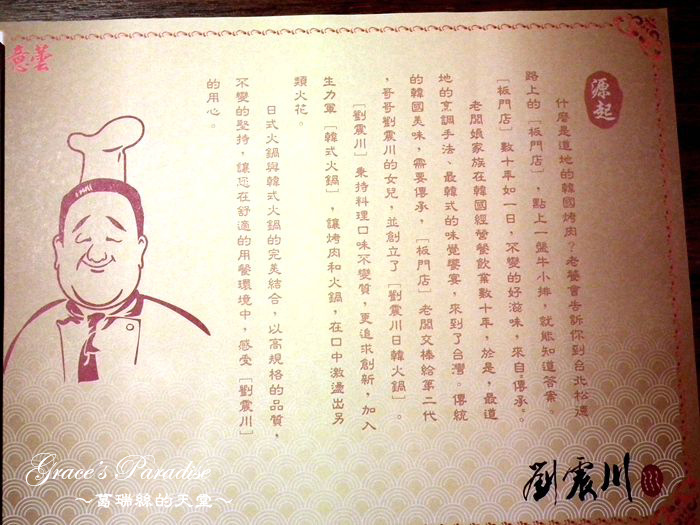 源起
什麼是道地的韓國烤肉？老饕會告訴你到台北松德
路上的［板門店］，點上一盤牛小排，就能知道答案。
［板門店］數十年如一日，不變的好滋味，來自"傳承"。
老闆娘家族在韓國經營餐飲業數十年，於是，最道
地的烹調手法、最韓式的味覺饗宴，來到了台灣。傳統
的韓國美味，需要傳承，［板門店］老闆交棒給第二代
，哥哥劉震川的女兒，並創立了［劉震川日韓火鍋］。
［劉震川］秉持料理口味不變質，更追求創新，加入
生力軍［韓式火鍋］，讓烤肉和火鍋，在口中激盪出另
類火花。
日式火鍋與韓式火鍋的完美結合，以高規格的品質，
不變的堅持，讓您在舒適的用餐環境中，感受［劉震川］
的用心。
劉震川
Grace's Paradise
～葛瑞絲的天堂～